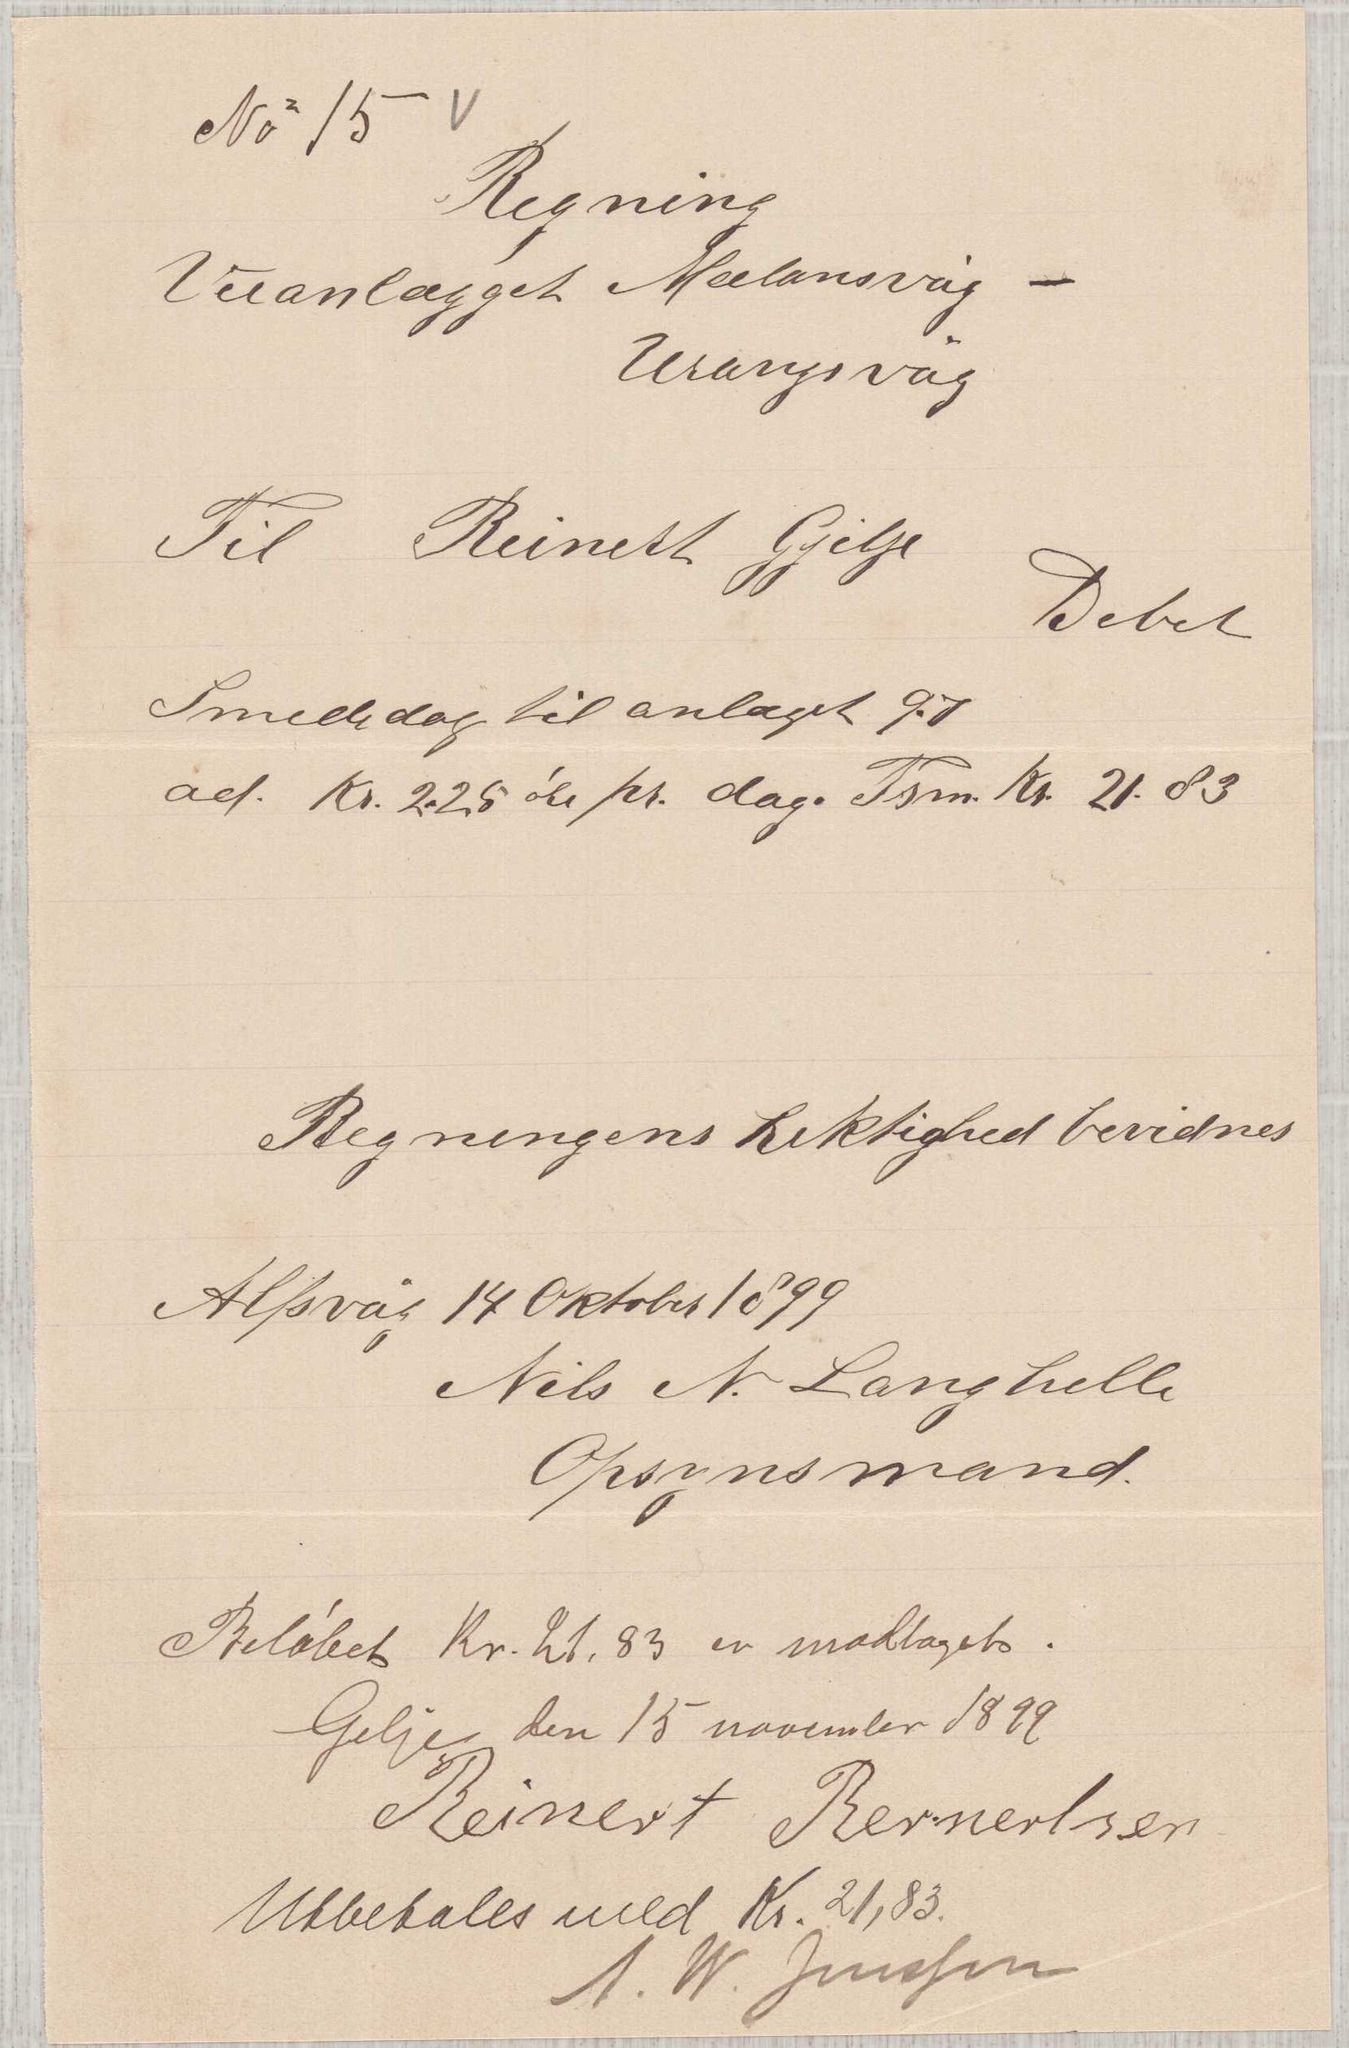 No 15 V
Regning
Veianlægget Mælansvåg -
Urangsvåg
Til Reinert Gjilje
Debet
Smededag til anlæget 9.7
ad. Kr. 2.25 öre pr. dag. Tsm. Kr. 21.83
Regningens riktighed bevidnes
Alfsvåg 14 Oktober 1899
Nils N. Langhelle
Opsynsmand.
Beløbet Kr. 21.83 er modtaget.
Gilje den 15 november 1899
Reinert Bernertsen
Utbetales med Kr. 21,83.
A. W. Jenssen